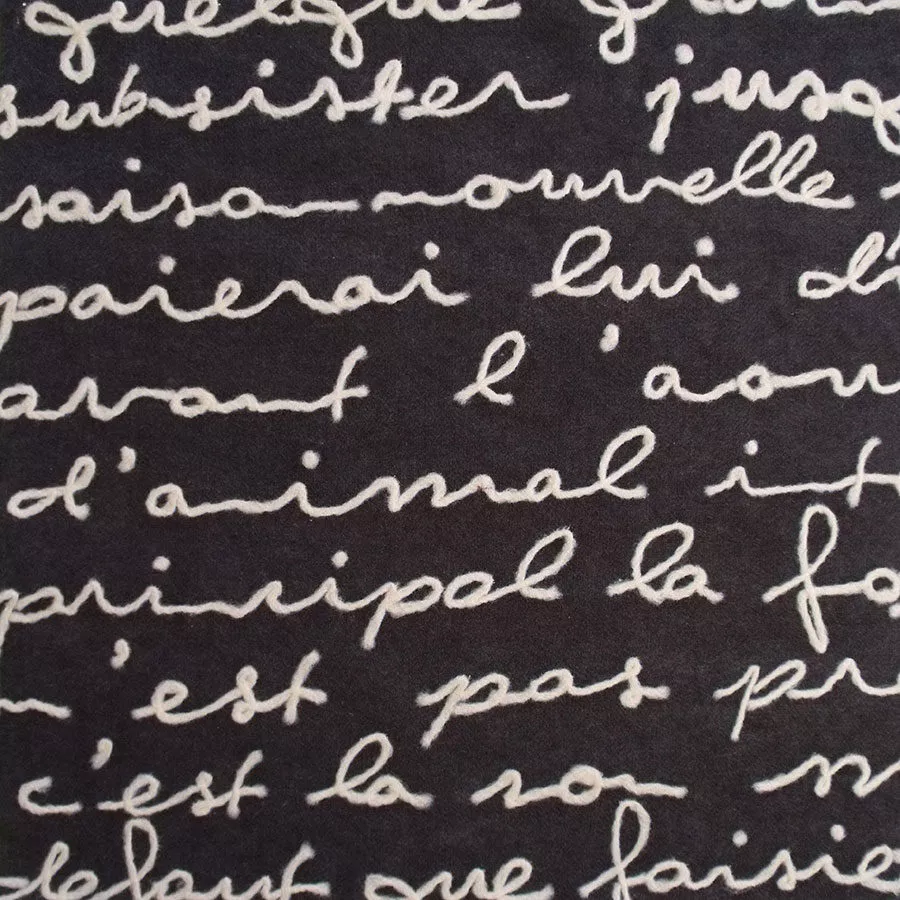 quelque grain
subsister jusq
saison nouvelle
paierai lui d'
avant l'aou
d'animal int
principal la fo
n'est pas pr
c'est la son m
defaut que faisie